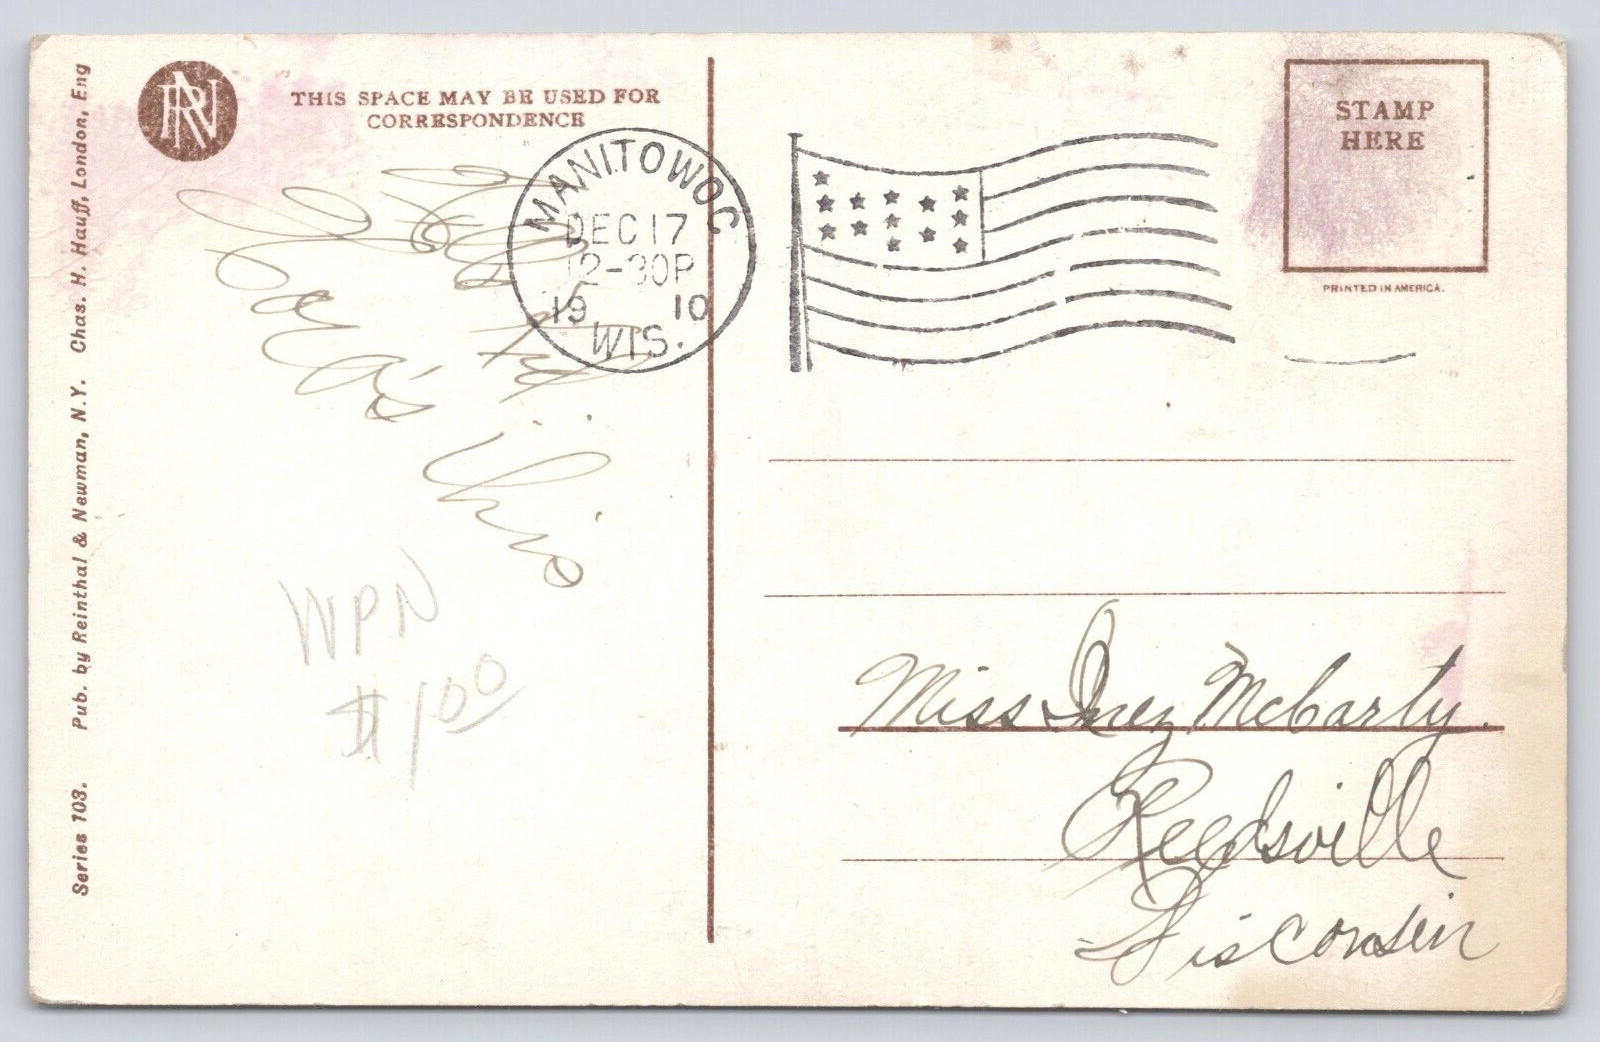 Series 103. Pub. by Reinthal & Newman, N.Y. Chas. H. Hauff, London, Eng
RN
THIS SPACE MAY BE USED FOR
CORRESPONDENCE
MANITOWOC
DEC 17
12-30P
1910
WIS.
STAMP
HERE
PRINTED IN AMERICA.
this
WPN
$1.00
Miss Inez McCarty.
Reedsville
Wisconsin